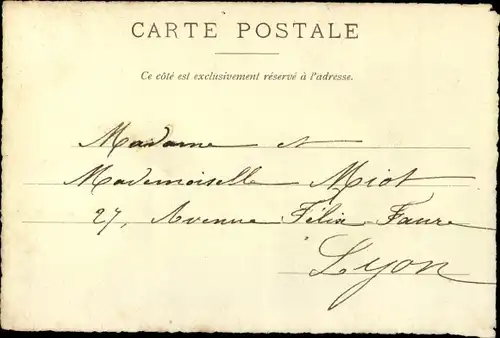 CARTE POSTALE
Ce côté est exclusivement réservé à l'adresse.
Madame et
Mademoiselle Miot
27, Avenue Félix Faure
Lyon